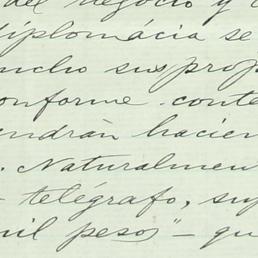 del negocio y
diplomácia se
ucho sus prop
onforme conte
endrán hacien
. Naturalmen
- telégrafo, su
mil pesos" - qu